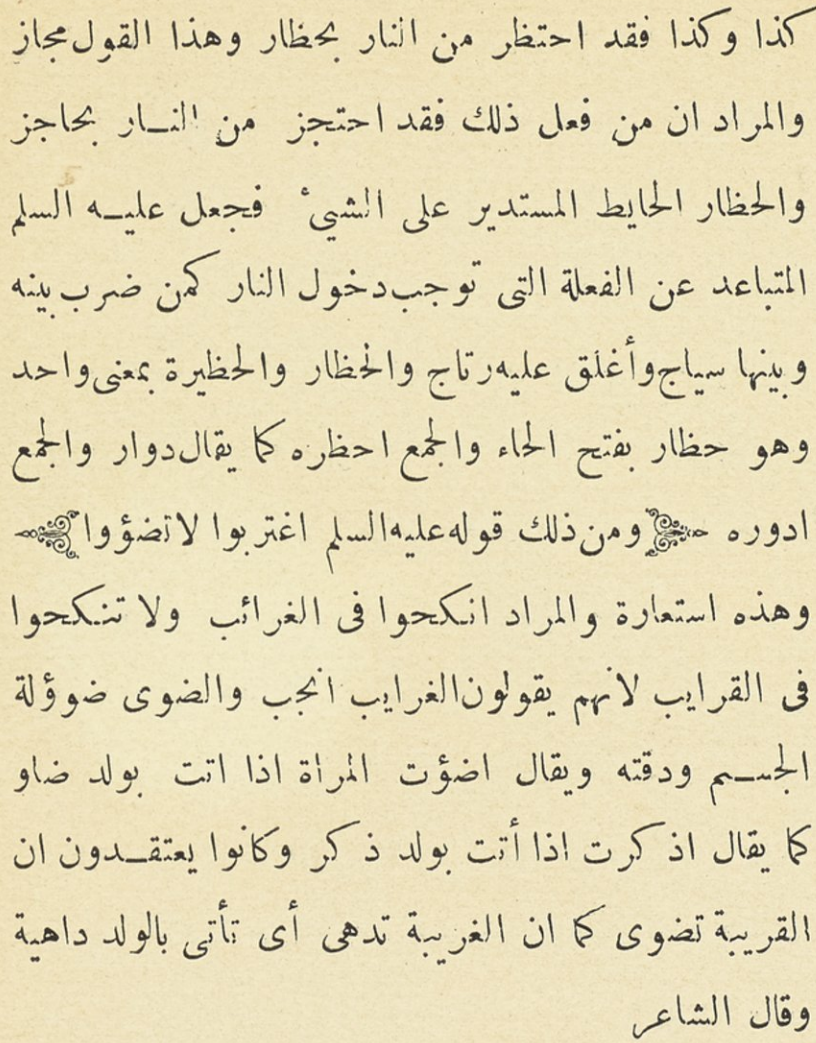 كذا وكذا فقد احتظر من النار بحظار وهذا القول مجاز
والمراد ان من فعل ذلك فقد احتجز من النــار بحاجز
والحظار الحايط المستدير على الشيئ فجعل عليــه السلم
المتباعد عن الفعلة التى توجب دخول النار كمن ضرب بينه
وبينها سياج وأغلق عليه رتاج والحظار والحظيرة بمعنى واحد
وهو حظار بفتح الحاء والجمع احظره كما يقال دوار والجمع
ادوره ومن ذلك قوله عليه السلم اغتربوا لا تضؤوا
وهذه استعارة والمراد انكحوا فى الغرائب ولا تنكحوا
فى القرايب لانهم يقولون الغرايب انجب والضوى ضوؤلة
الجســم ودقته ويقال اضؤت المراة اذا اتت بولد ضاو
كما يقال اذكرت اذا أتت بولد ذكر وكانوا يعتقــدون ان
القريبة تضوى كما ان الغريبة تدهى أى تأتى بالولد داهية
وقال الشاعر